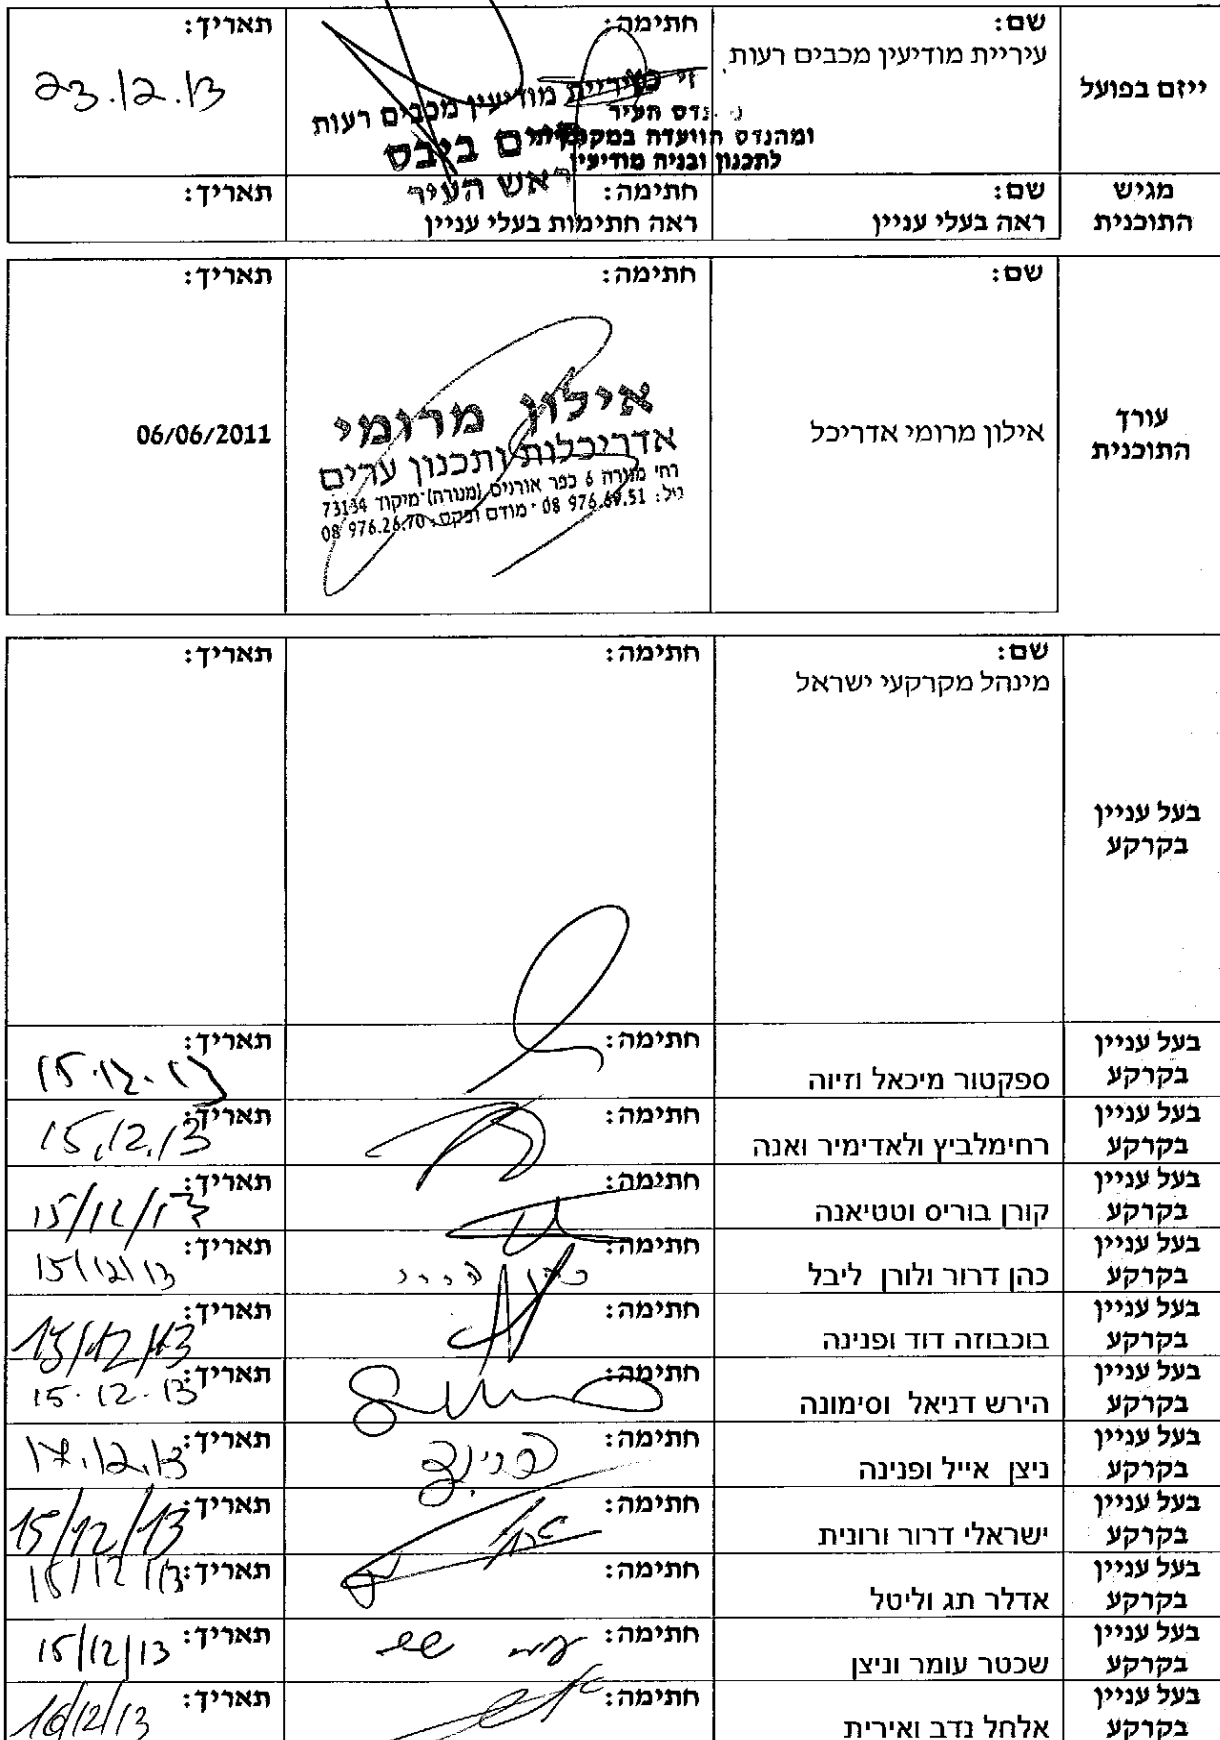 ייזם בפועל
שם:
עיריית מודיעין מכבים רעות
חתימה:
תאריך:
23.12.13
עיריית מודיעין מכבים רעות
חיים ביבס
ראש העיר
מהנדס העיר
ומהנדס הוועדה המקומית
לתכנון ובניה מודיעין
מגיש התוכנית
שם:
ראה בעלי עניין
חתימה:
ראה חתימות בעלי עניין
תאריך:
עורך התוכנית
שם:
אילון מרומי אדריכל
חתימה:
אילון מרומי
אדריכלות ותכנון ערים
רחי מנורה 6 כפר אורנים (מנורה) מיקוד 73134
טל: 08 976.69.51 · מודם ופקס. 08 976.26.70
תאריך:
06/06/2011
בעל עניין בקרקע
שם:
מינהל מקרקעי ישראל
חתימה:
תאריך:
בעל עניין בקרקע
ספקטור מיכאל וזיוה
חתימה:
תאריך:
15.12.13
בעל עניין בקרקע
רחימלביץ ולאדימיר ואנה
חתימה:
תאריך:
15.12.13
בעל עניין בקרקע
קורן בוריס וטטיאנה
חתימה:
תאריך:
15/12/13
בעל עניין בקרקע
כהן דרור ולורן ליבל
חתימה:
כהן דרור
תאריך:
15/12/13
בעל עניין בקרקע
בוכבוזה דוד ופנינה
חתימה:
תאריך:
15/12/13
בעל עניין בקרקע
הירש דניאל וסימונה
חתימה:
תאריך:
15.12.13
בעל עניין בקרקע
ניצן אייל ופנינה
חתימה:
תאריך:
17.12.13
בעל עניין בקרקע
ישראלי דרור ורונית
חתימה:
תאריך:
15/12/13
בעל עניין בקרקע
אדלר תג וליטל
חתימה:
תאריך:
15/12/13
בעל עניין בקרקע
שכטר עומר וניצן
חתימה:
תאריך:
15/12/13
בעל עניין בקרקע
אלחל נדב ואירית
חתימה:
תאריך:
16/12/13